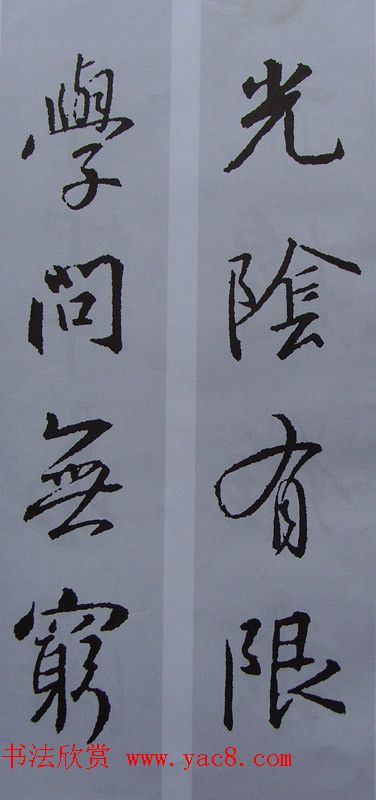 光陰有限
學問無窮
书法欣赏 www.yac8.com